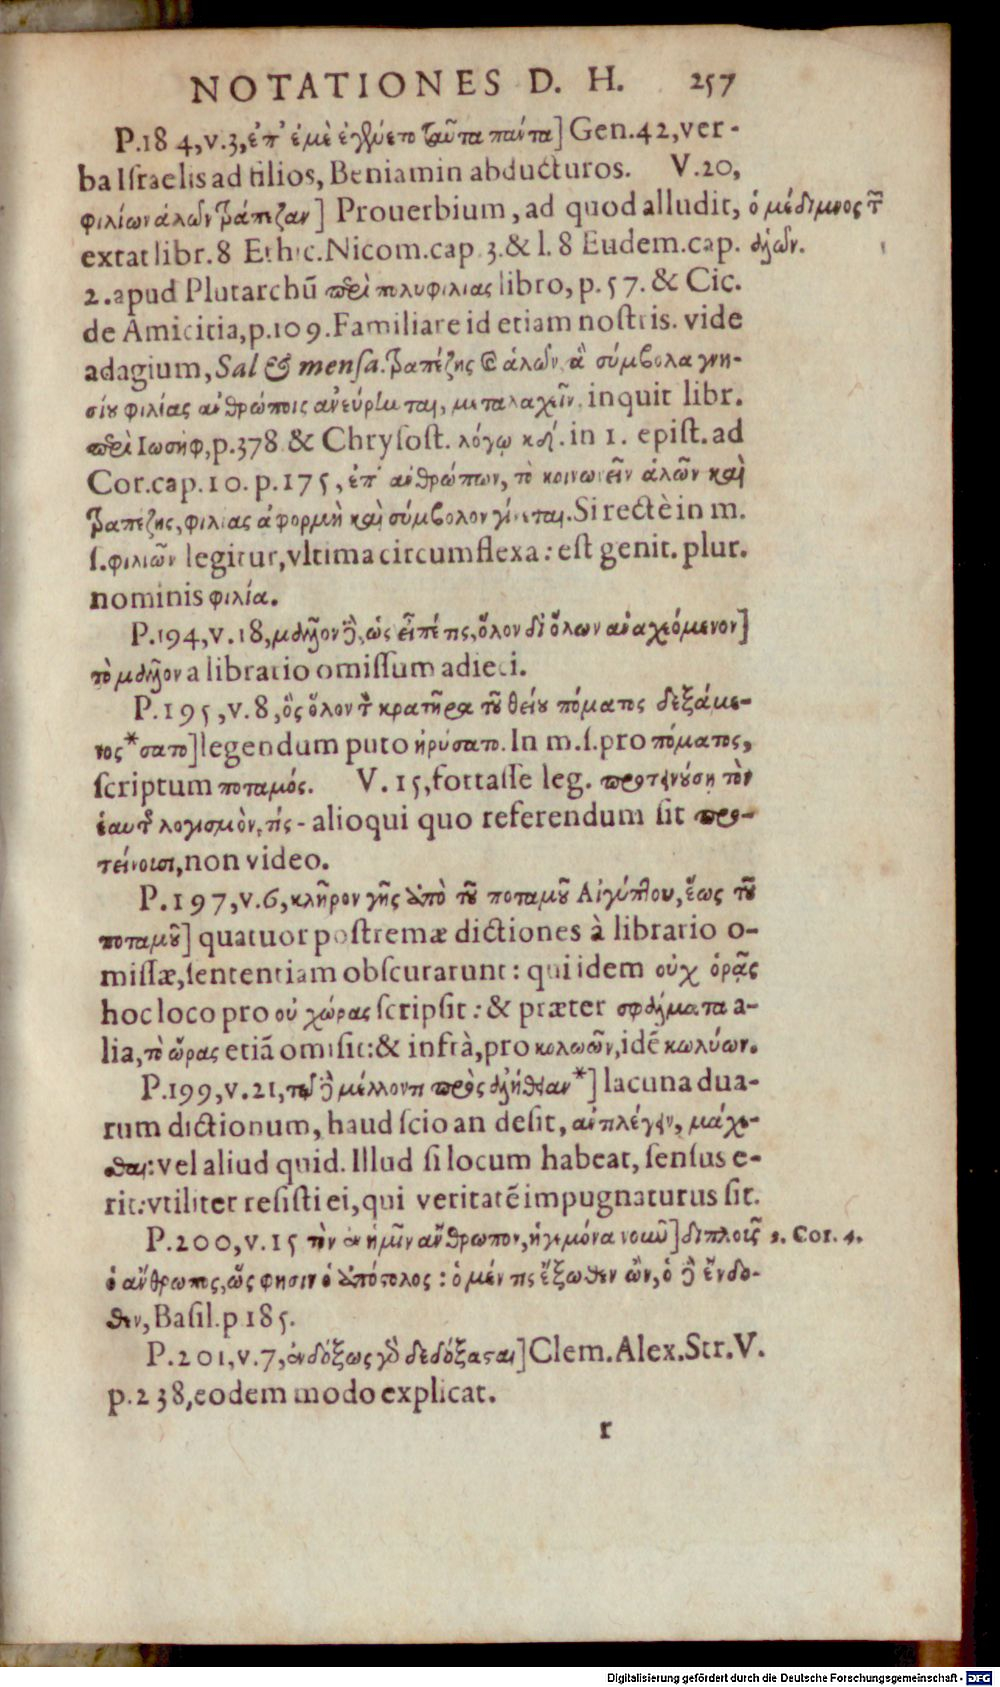 NOTATIONES D. H. 257
P.184,v.3,ἐπ' ἐμὲ ἐγένετο ταῦτα πάντα] Gen.42,ver-
ba Israelis ad filios, Beniamin abducturos. V.20,
φιλίων ἁλῶν τράπεζαν] Prouerbium, ad quod alludit, ὁ μέδιμνος τῶν
extat libr.8 Ethic.Nicom.cap.3.& l.8 Eudem.cap. ἁλῶν.
2.apud Plutarchū περὶ πολυφιλίας libro, p.57. & Cic.
de Amicitia,p.109.Familiare id etiam nostris. vide
adagium, Sal & mensa. τραπέζης καὶ ἁλῶν, ἃ σύμβολα γνη-
σίου φιλίας ἀνθρώποις ἀνεύρηται, μεταλαχεῖν, inquit libr.
περὶ Ιωσὴφ,p.378 & Chrysost. λόγῳ κδʹ. in 1. epist. ad
Cor.cap.10.p.175,ἐπ' ἀνθρώπων, τὸ κοινωνεῖν ἁλῶν καὶ
τραπεζης, φιλίας ἀφορμὴ καὶ σύμβολον γίνεται. Si rectè in m.
s.φιλιῶν legitur,vltima circumflexa: est genit. plur.
nominis φιλία.
P.194,v.18,μᾶλλον δὲ, ὡς εἶπέ τις, ὅλον δι' ὅλων ἀναχεόμενον]
τὸ μᾶλλον a librario omissum adieci.
P.195,v.8,ὃς ὅλον τὸν κρατῆρα τοῦ θείου πόματος δεξάμε-
νος*σατο] legendum puto ἠρύσατο. In m.s.pro πόματος,
scriptum ποταμός. V.15,fortasse leg. προτείνουσι τὸν
ἑαυτῶν λογισμὸν,τίς - alioqui quo referendum sit προ-
τείνοισι,non video.
P.197,v.6,κλῆρον γῆς ἀπὸ τοῦ ποταμοῦ Αἰγύπτου, ἕως τοῦ
ποταμοῦ] quatuor postremæ dictiones à librario o-
missæ,sententiam obscurarunt: qui idem οὐχ ὁρᾷς
hoc loco pro οὐ χώρας scripsit: & præter σφάλματα a-
lia,τὸ ὥρας etiā omisit:& infrà,pro κολωῶν,idē κωλύων.
P.199,v.21,τῷ δὲ μέλλοντι πρὸς ἀλήθειαν*] lacuna dua-
rum dictionum, haud scio an desit, ἀντιλέγειν, μάχε-
σθαι: vel aliud quid. Illud si locum habeat, sensus e-
rit:vtiliter resisti ei, qui veritatē impugnaturus sit.
P.200,v.15 τὸν ἐν ἡμῖν ἄνθρωπον, ἡγεμόνα νοῦν] διπλοῦς 2. Cor. 4.
ὁ ἄνθρωπος, ὥς φησιν ὁ ἀπόστολος: ὁ μέν τις ἔξωθεν ὢν, ὁ δὲ ἔνδο-
θεν, Basil.p 185.
P.201,v.7,ἐνδόξως γὰρ δεδόξασται] Clem.Alex.Str.V.
p.238,eodem modo explicat.
r
Digitalisierung gefördert durch die Deutsche Forschungsgemeinschaft - DFG